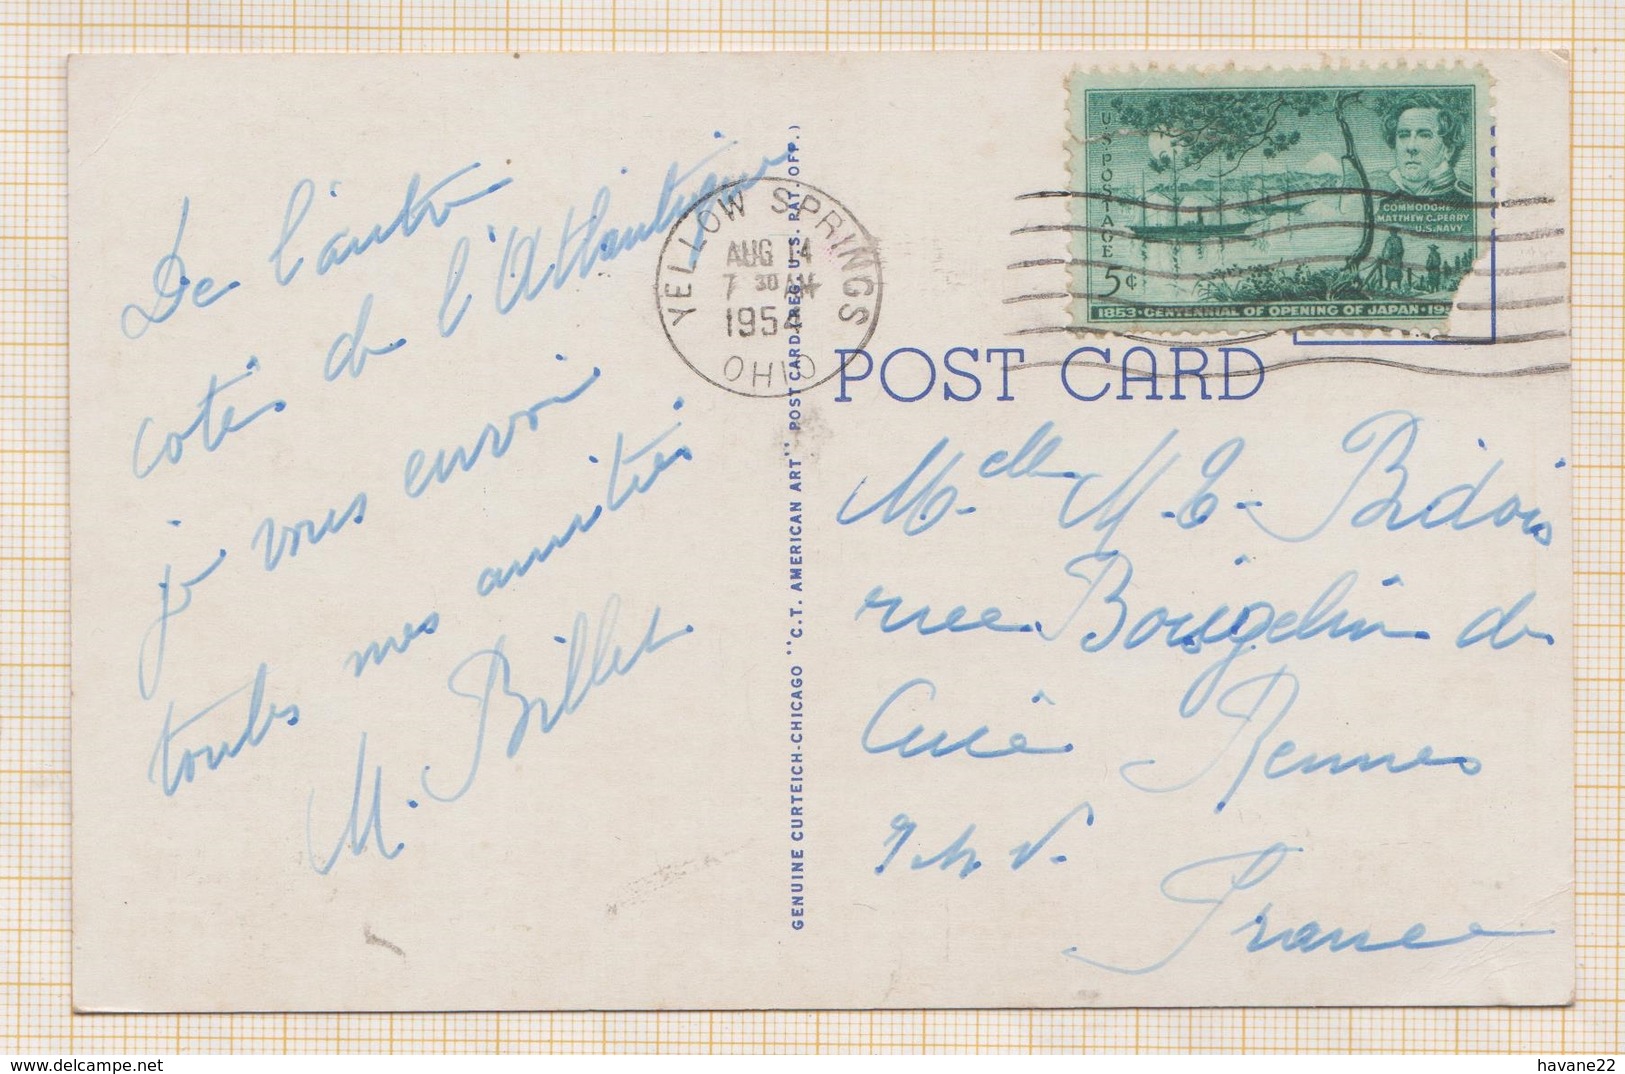 De l'autre
coté de l'Atlantique
je vous envoi
toutes mes amitiés
M. Billet
YELLOW SPRINGS
AUG 14
7 30 AM
1954
OHIO
GENUINE CURTEICH-CHICAGO "C.T. AMERICAN ART" POST CARD (REG. U.S. PAT. OFF.)
U.S. POSTAGE
COMMODORE
MATTHEW C. PERRY
U.S. NAVY
5¢
1853 · CENTENNIAL OF OPENING OF JAPAN · 19
POST CARD
Melle M. E. Bidois
rue de
Rennes
I et V.
France
havane22